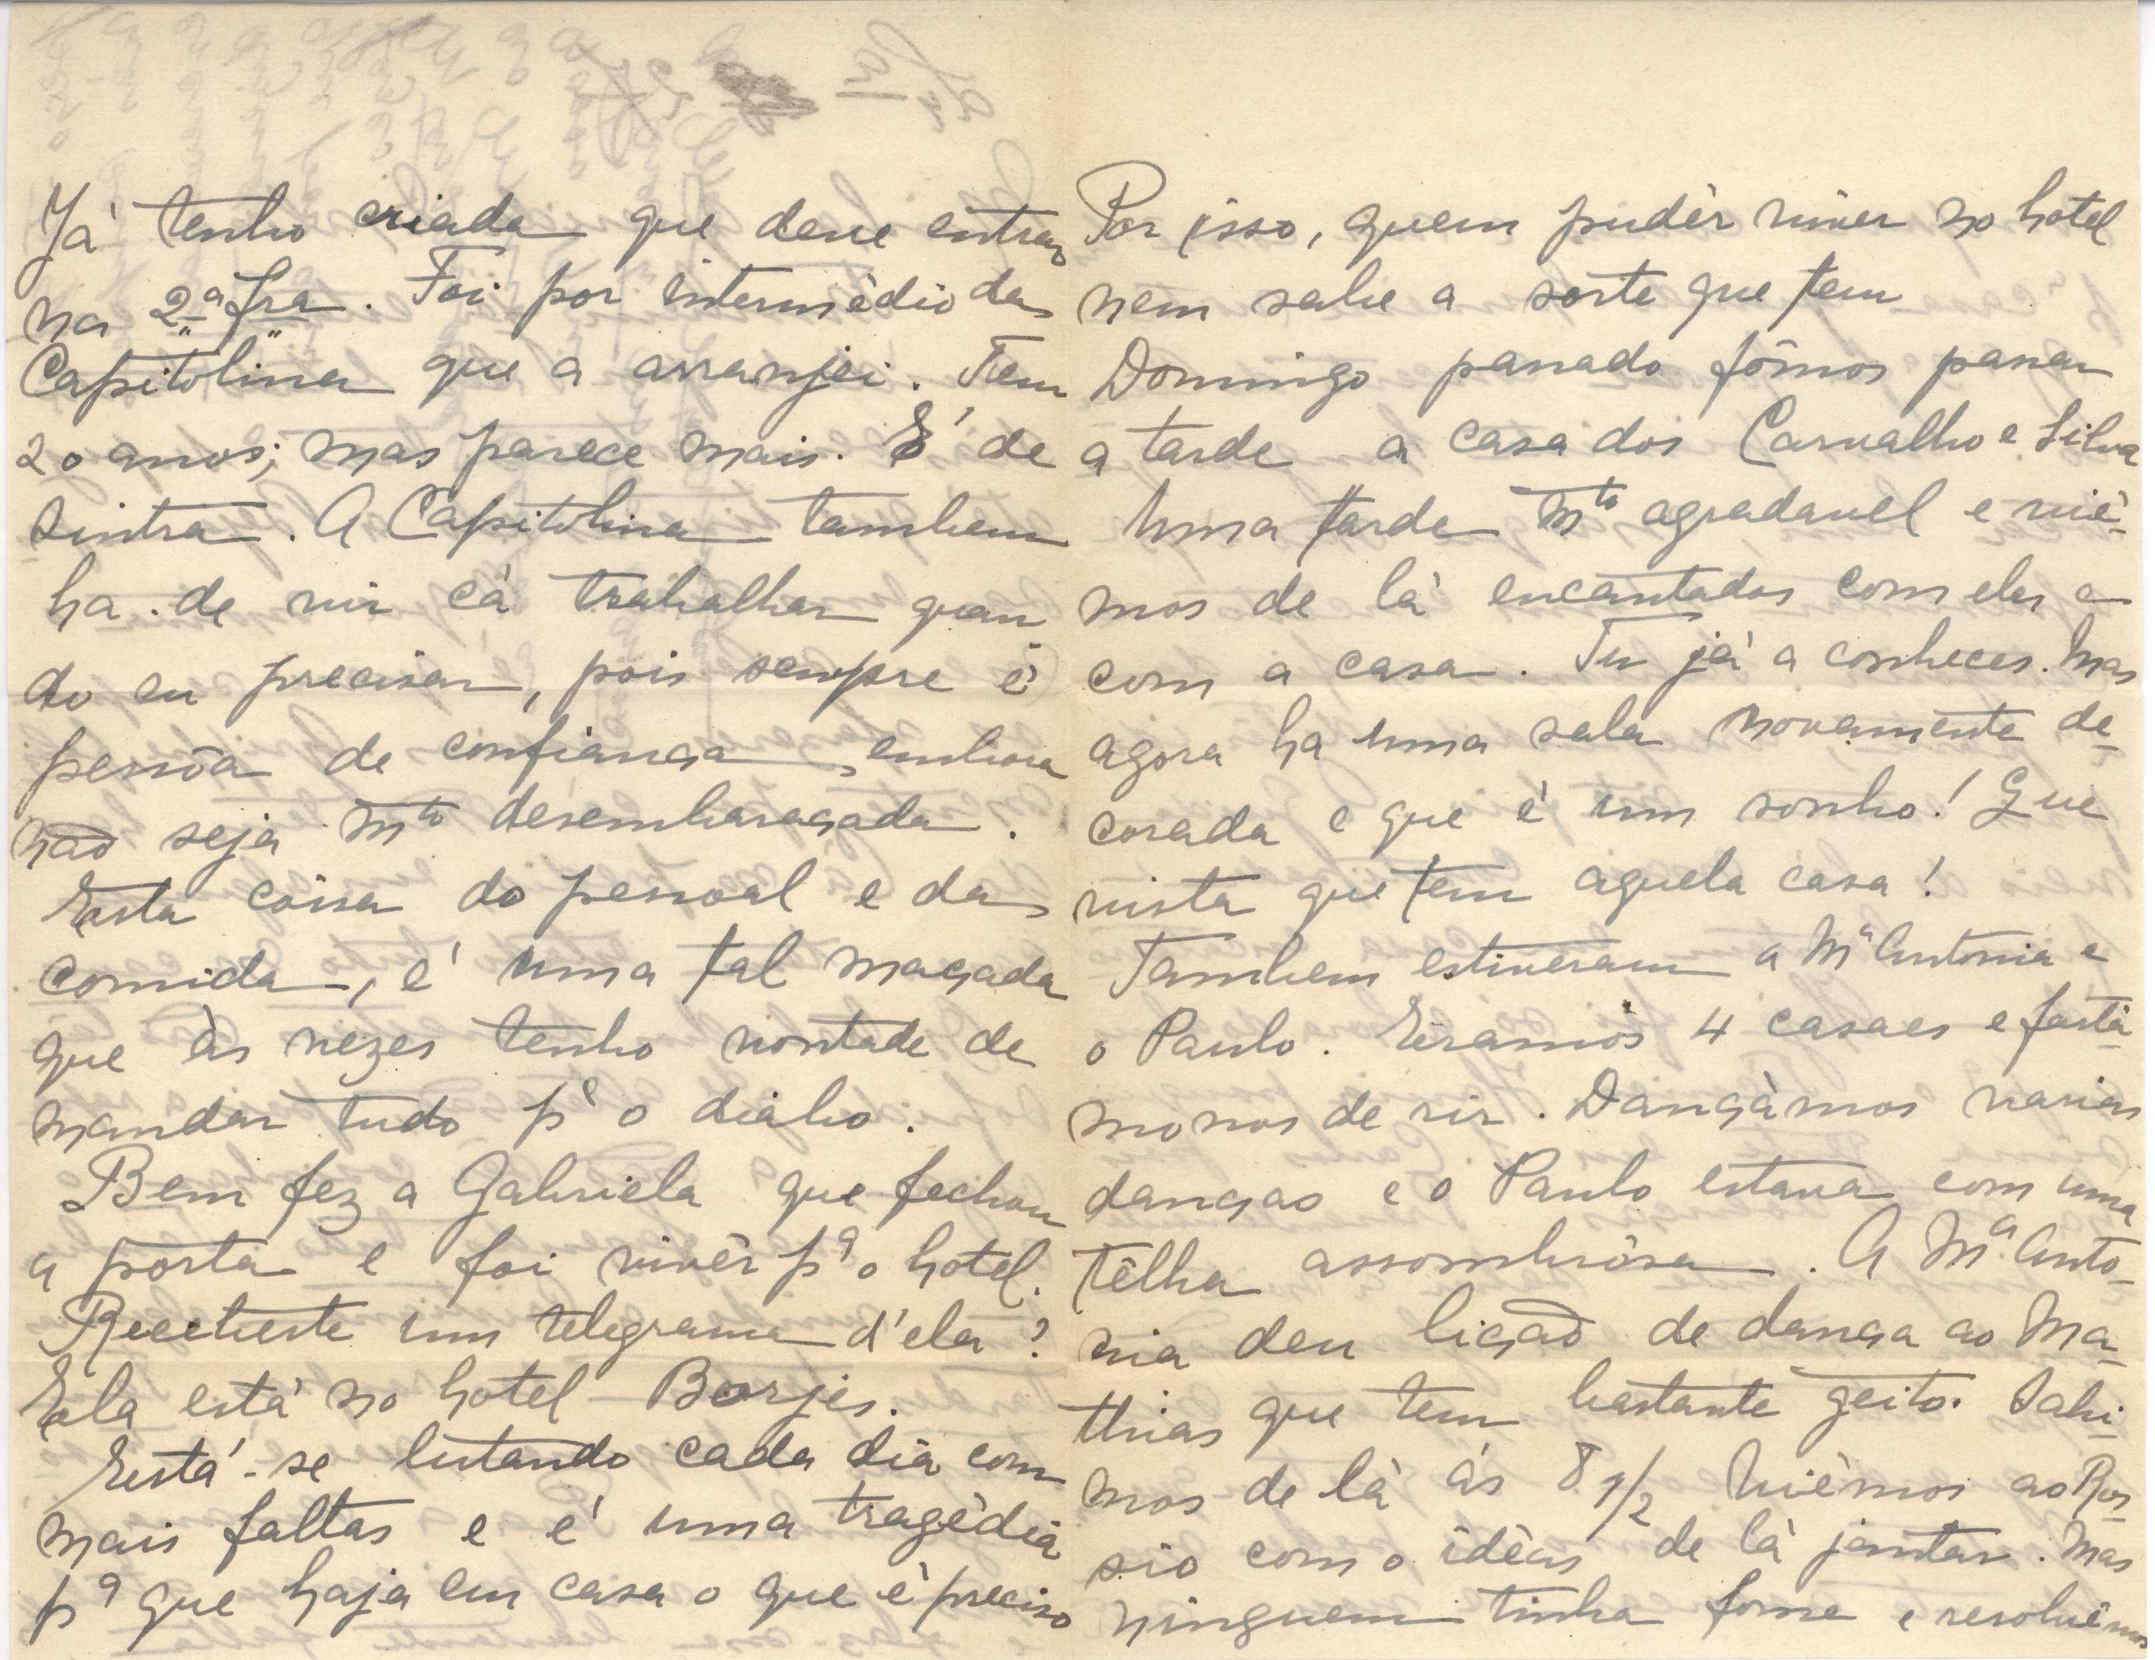 Já tenho criada que deve entrar
na 2ª fra. Foi por intermédio da
Capitolina que a arranjei. Tem
20 anos; mas parece mais. É de
Sintra. A Capitolina tambem
ha-de vir cá trabalhar quan-
do eu precisar, pois sempre é
pessôa de confiança, embora
não seja mto desembaraçada.
Esta coisa do pessoal e da
comida, é uma tal maçada
que às vezes tenho vontade de
mandar tudo pª o diabo.
Bem fez a Gabriela que fechou
a porta e foi vivêr pª o hotel.
Recebeste um telegrama d'ela?
Ela está no hotel Borjes.
Está-se lutando cada dia com
mais faltas e é uma tragédia
pª que haja em casa o que é preciso
Por isso, quem pudér viver no hotel
nem sabe a sorte que tem
Domingo passado fômos passar
a tarde a casa dos Carvalho e Silva
Uma tarde mto agradavel e viè-
mos de lá encantados com eles e
com a casa. Tu já a conheces. Mas
agora ha uma sala novamente de-
corada e que é um sonho! Que
vista que tem aquela casa!
Tambem estiveram a Mª Antonia e
o Paulo. Eramos 4 casaes e fartá-
monos de rir. Dançàmos varias
danças e o Paulo estava com uma
têlha assombrôsa. A Mª Anto-
nia deu lição de dança ao Ma-
thias que tem bastante geito. Sahi-
mos de lá ás 8 1/2 Vièmos ao Ros-
sio com o idèas de lá jantar. Mas
ninguem tinha fome e resolvêmos